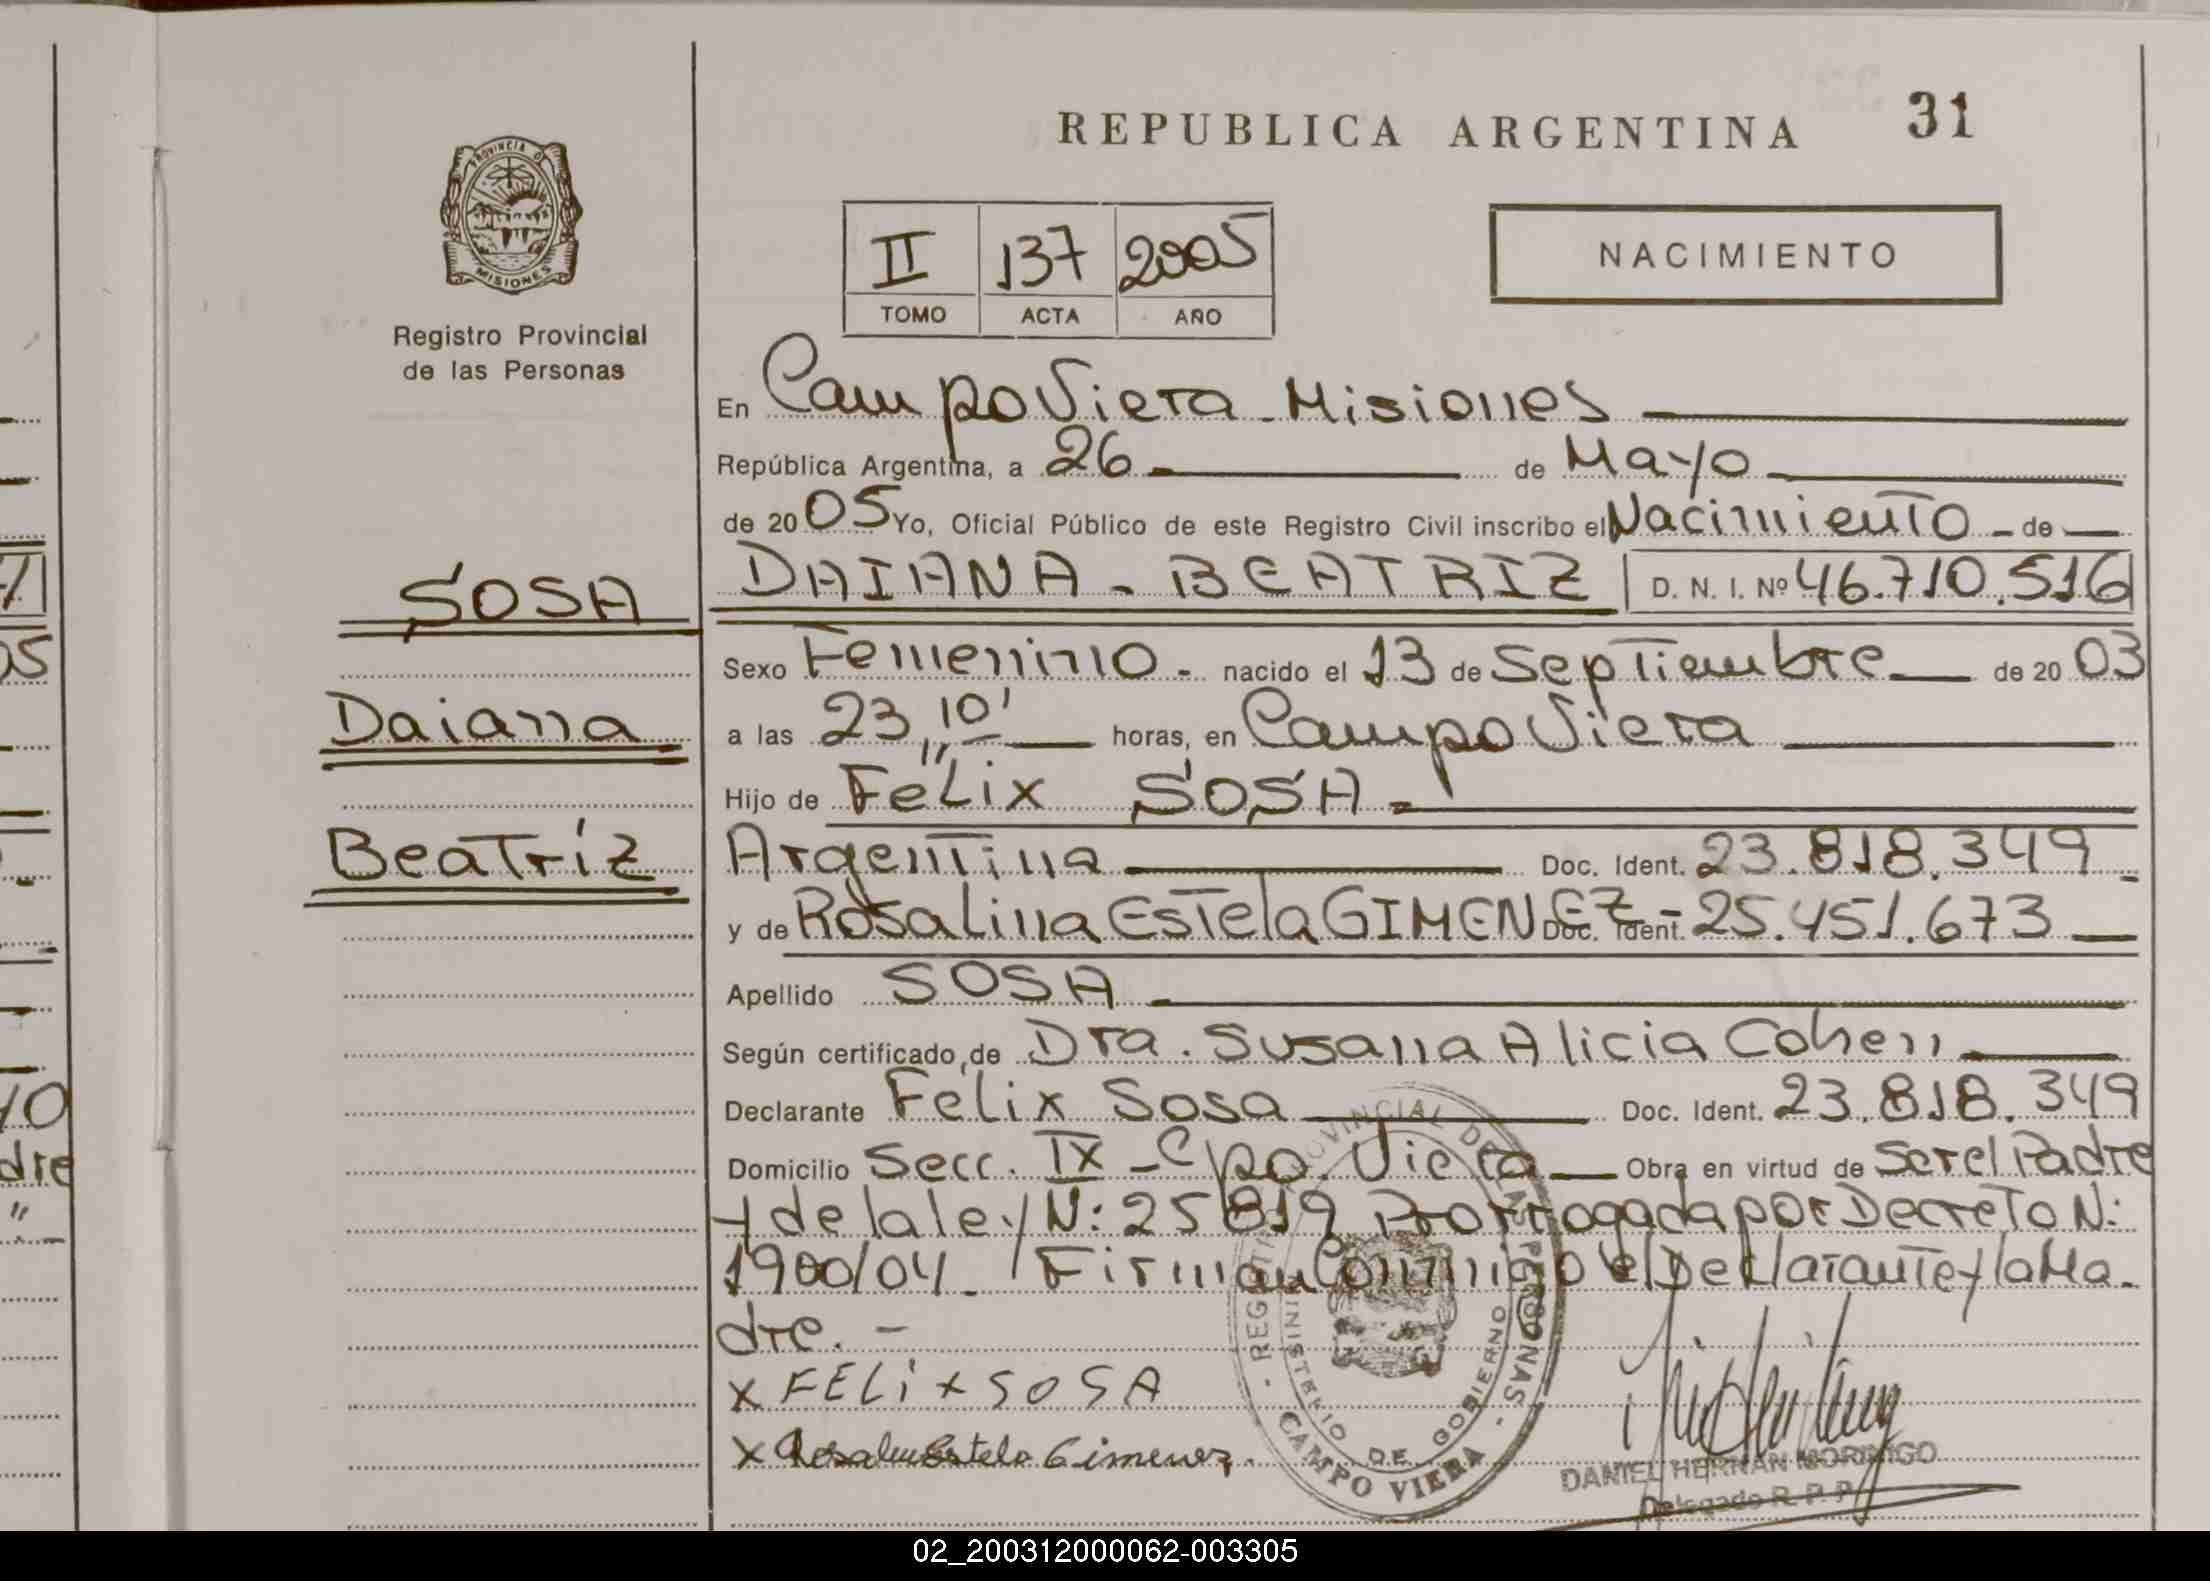 REPUBLICA ARGENTINA 31
PROVINCIA DE
MISIONES
Registro Provincial
de las Personas
II 137 2005
TOMO ACTA AÑO
NACIMIENTO
En Campo Viera - Misiones
República Argentina, a 26 de Mayo
de 2005 Yo, Oficial Público de este Registro Civil inscribo el Nacimiento de
SOSA
Daiana
Beatríz
DAIANA - BEATRIZ D. N. I. Nº 46.710.516
Sexo Femenino - nacido el 13 de Septiembre de 20 03
a las 23,10' horas, en Campo Viera
Hijo de Felix SOSA -
Argentina Doc. Ident. 23.818.349
y de Rosalina Estela GIMENEZ - Doc. Ident. 25.451.673
Apellido SOSA
Según certificado de Dra. Susana Alicia Cohen
Declarante Félix Sosa Doc. Ident. 23.818.349
Domicilio Secc. IX - Cpo. Viera Obra en virtud de Ser el Padre
y de la ley N: 25819 Prorrogada por Decreto N:
1900/04 - Firman Conmigo el Declarante y la Ma-
dre. -
x FELiX SOSA
x Rosalina Estela Gimenez.
REGISTRO PROVINCIAL DE LAS PERSONAS
MINISTERIO DE GOBIERNO
CAMPO VIERA
DANIEL HERNAN MORINIGO
Delegado R. P. P.
05
10
dre
02_200312000062-003305